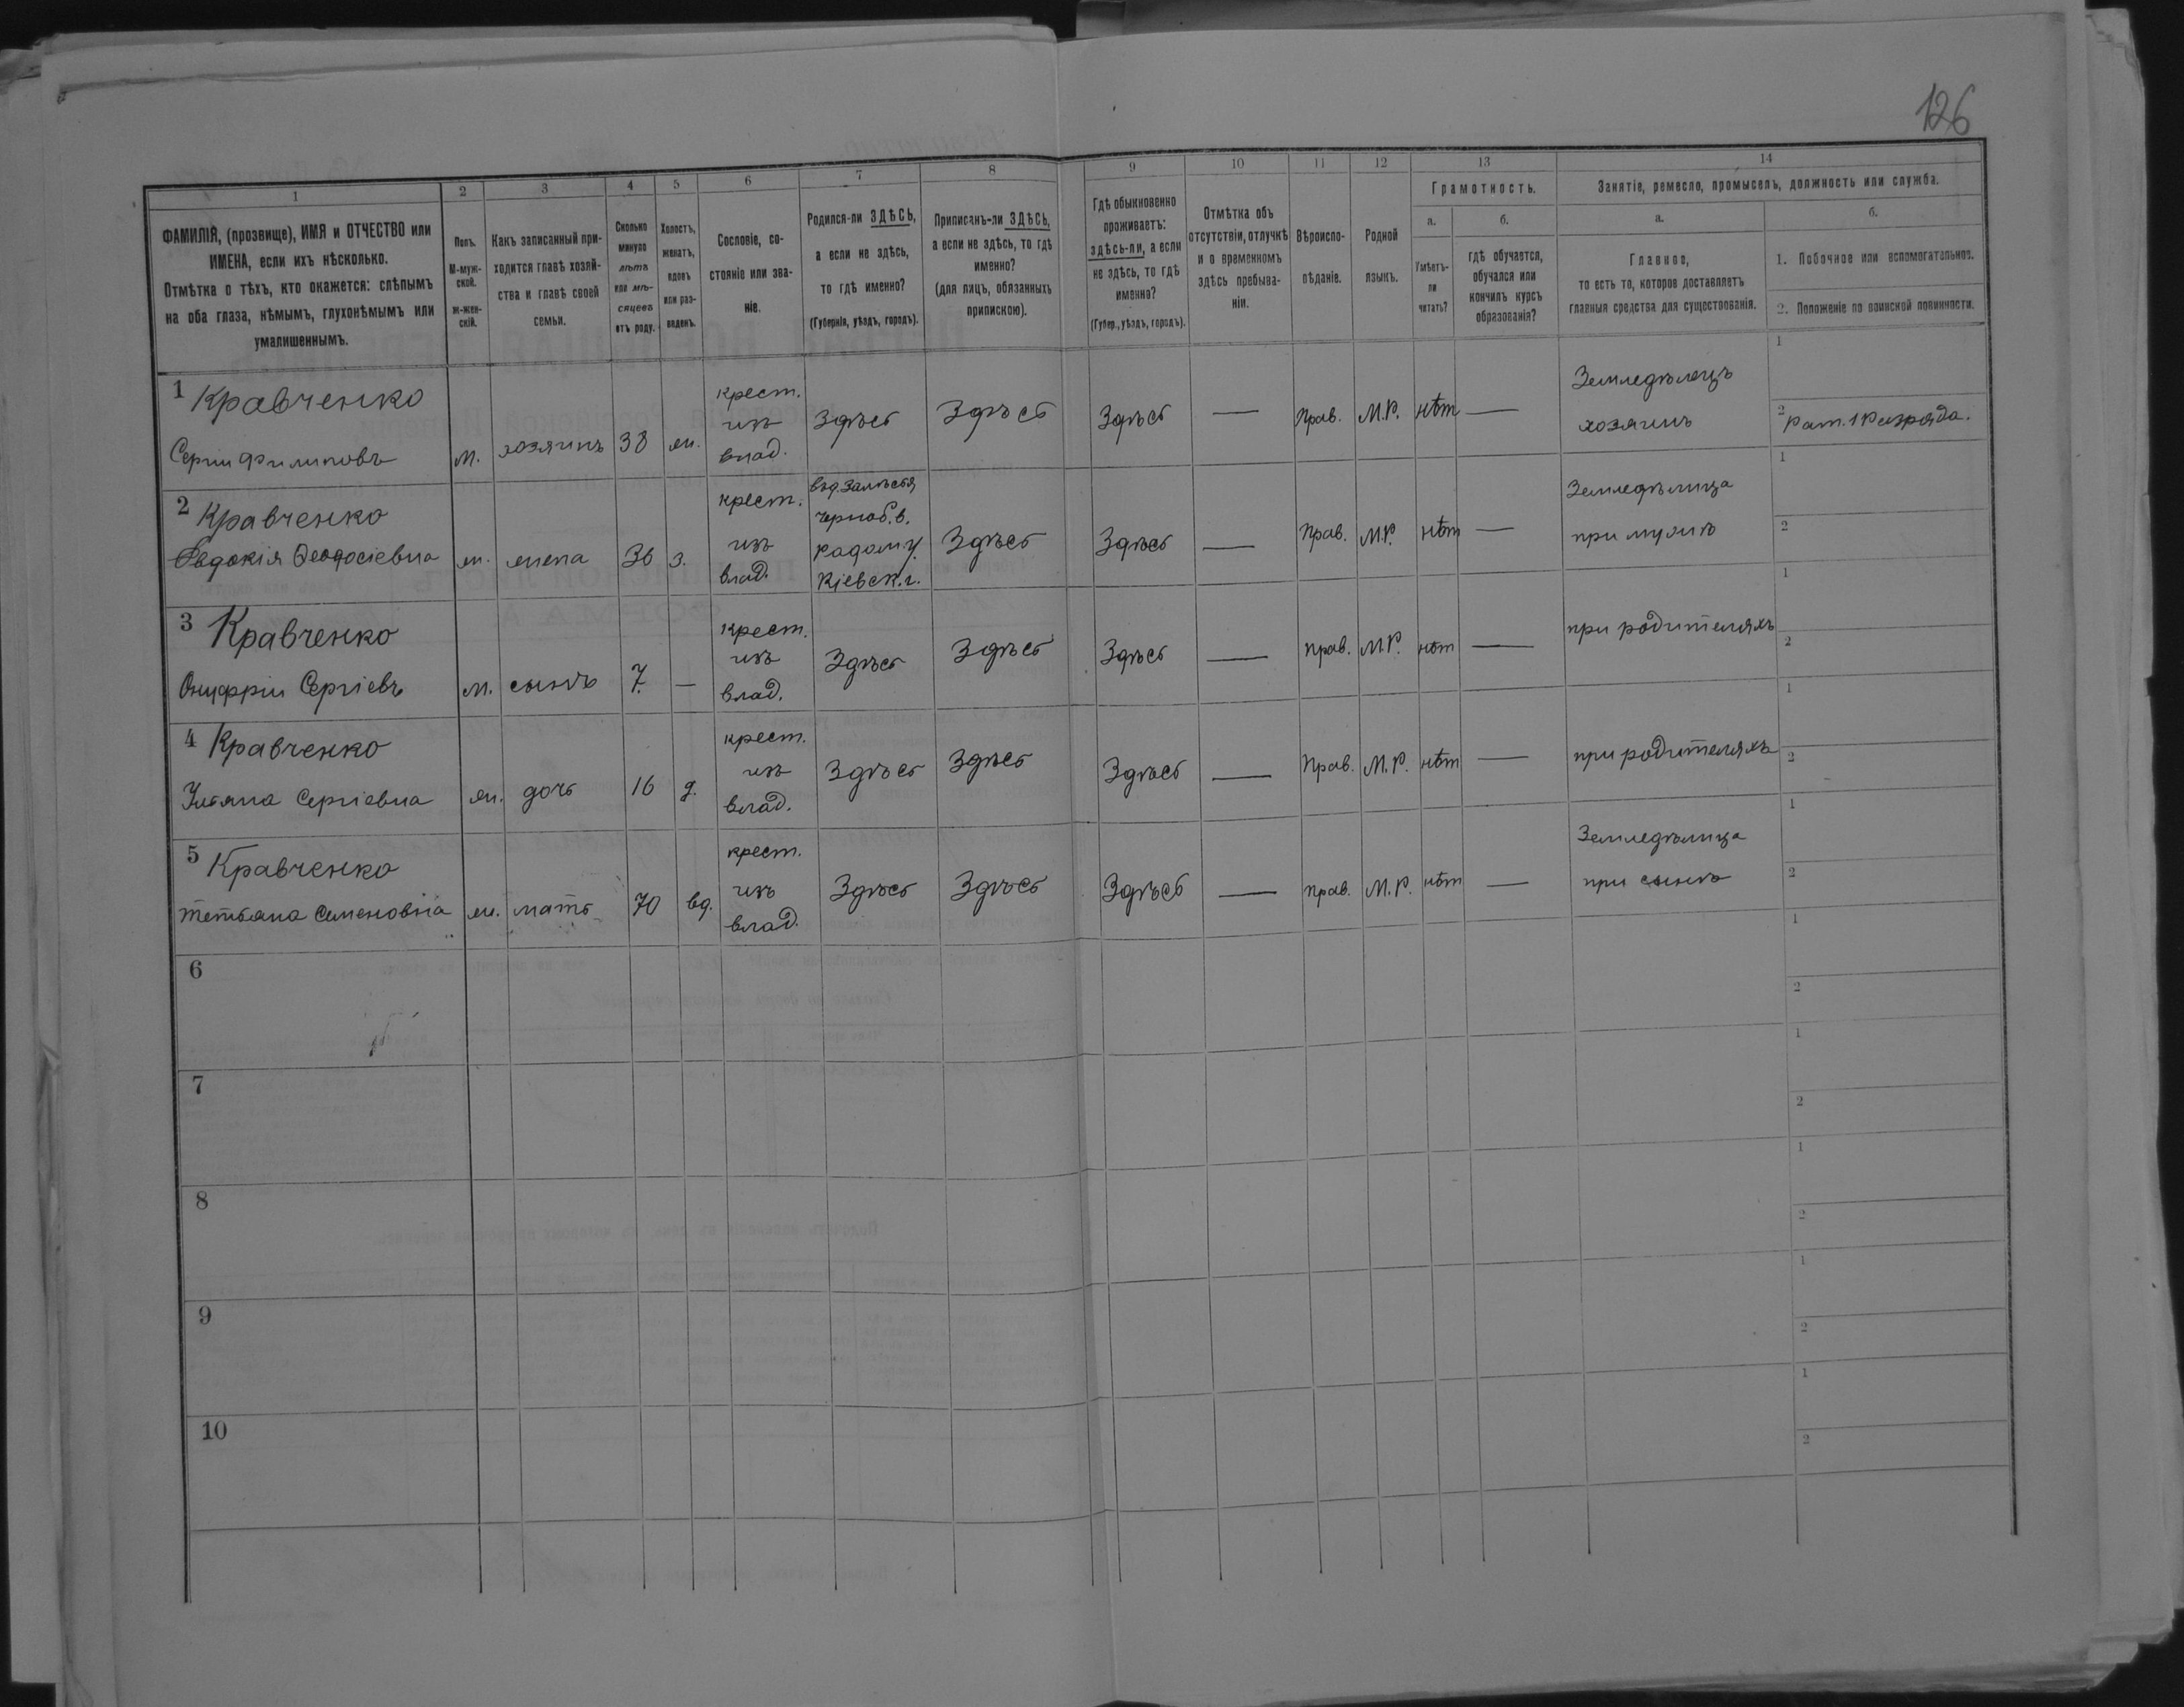 126
1 2 3 4 5 6 7 8 9 10 11 12 13 14
ФАМИЛІЯ, (прозвище), ИМЯ и ОТЧЕСТВО или
ИМЕНА, если ихъ нѣсколько.
Отмѣтка о тѣхъ, кто окажется: слѣпымъ
на оба глаза, нѣмымъ, глухонѣмымъ или
умалишеннымъ.
Полъ.
М-муж-
ской.
ж-жен-
скій.
Какъ записанный при-
ходится главѣ хозяй-
ства и главѣ своей
семьи.
Сколько
минуло
лѣтъ
или мѣ-
сяцевъ
отъ роду.
Холостъ,
женатъ,
вдовъ
или раз-
веденъ.
Сословіе, со-
стояніе или зва-
ніе.
Родился-ли ЗДѢСЬ,
а если не здѣсь,
то гдѣ именно?
(Губернія, уѣздъ, городъ).
Приписанъ-ли ЗДѢСЬ,
а если не здѣсь, то гдѣ
именно?
(для лицъ, обязанныхъ
припискою).
Гдѣ обыкновенно
проживаетъ:
здѣсь-ли, а если
не здѣсь, то гдѣ
именно?
(Губер., уѣздъ, городъ).
Отмѣтка объ
отсутствіи, отлучкѣ
и о временномъ
здѣсь пребыва-
ніи.
Вѣроиспо-
вѣданіе.
Родной
языкъ.
Грамотность.
а.
Умѣетъ-
ли
читать?
б.
гдѣ обучается,
обучался или
кончилъ курсъ
образованія?
Занятіе, ремесло, промыселъ, должность или служба.
а.
Главное,
то есть то, которое доставляетъ
главныя средства для существованія.
б.
1. Побочное или вспомогательное.
2. Положеніе по воинской повинности.
1 Кравченко
Сергіи Филиповъ
м.
хозяинъ
38
ж.
крест.
изъ
влад.
Здѣсь
Здѣсь
Здѣсь
—
Прав.
М.Р.
нѣт
—
Земледѣлецъ
хозяинъ
1
2 Рат. 1 Разряда.
2 Кравченко
Евдокія Ѳеодосіевна
ж.
жена
36
з.
крест.
изъ
влад.
въд. Залѣсья
Черноб. в.
Радом. у.
Кіевск. г.
Здѣсь
Здѣсь
—
Прав.
М.Р.
нѣт
—
Земледѣлица
при мужѣ
1
2
3 Кравченко
Онуфріи Сергіевъ
м.
сынъ
7.
—
крест.
изъ
влад.
Здѣсь
Здѣсь
Здѣсь
—
прав.
М.Р.
нѣт
—
при родителяхъ
1
2
4 Кравченко
Ульяна Сергіевна
ж.
дочь
16
д.
крест.
изъ
влад.
Здѣсь
Здѣсь
Здѣсь
—
Прав.
М.Р.
нѣт
—
при родителяхъ
1
2
5 Кравченко
Тетьяна Семеновна
ж.
мать
70
вд.
крест.
изъ
влад.
Здѣсь
Здѣсь
Здѣсь
—
прав.
М.Р.
нѣт
—
Земледѣлица
при сынѣ
1
2
6
1
2
7
1
2
8
1
2
9
1
2
10
1
2